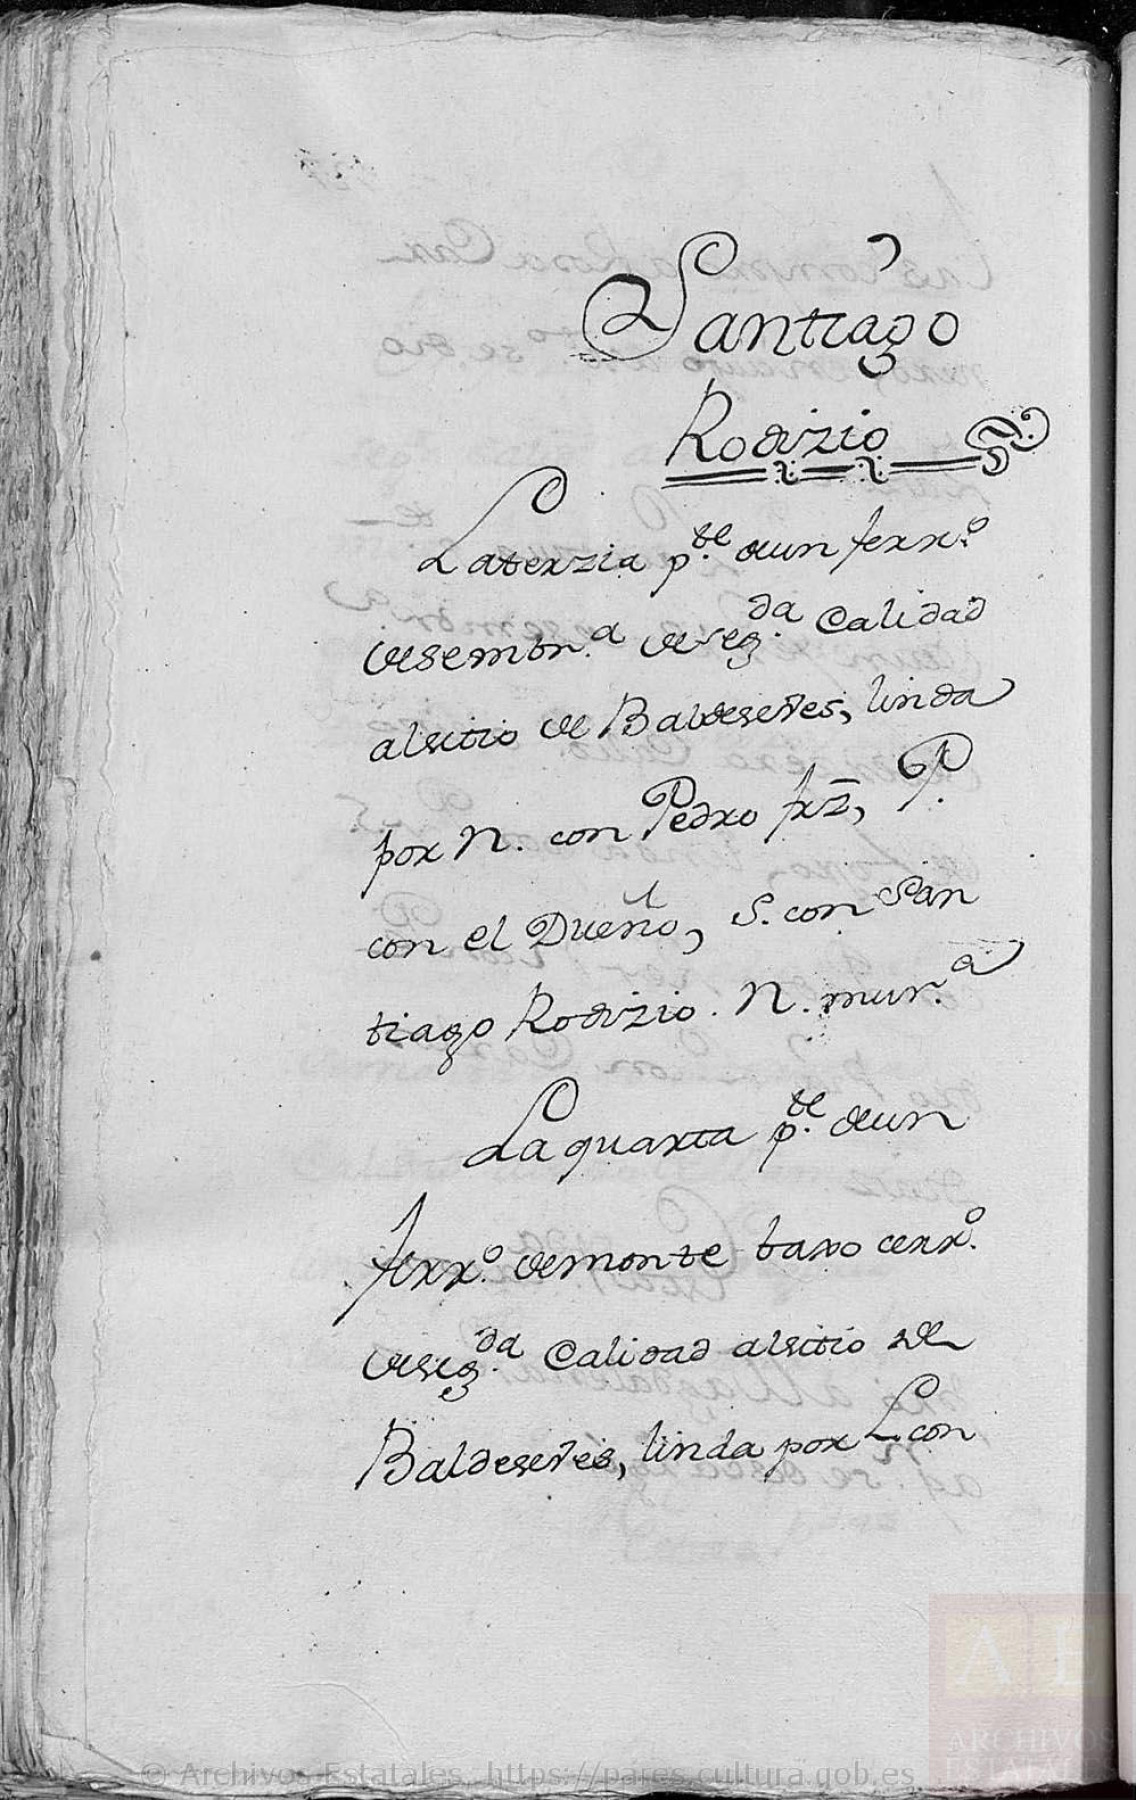 Santiago
Rodizio
La terzia p.te de un ferr.o
de sembr.a de seg.da Calidad
al sitio de Baldeseres, linda
por N. con Pedro frz, P.
con el Dueño, S. con San
tiago Rodizio. N. mur.a
La quarta p.te de un
ferr.o de monte baxo cerr.o
de seg.da Calidad al sitio de
Baldeseres, linda por L con
© Archivos Estatales, https://pares.cultura.gob.es
ARCHIVOS
ESTATALES